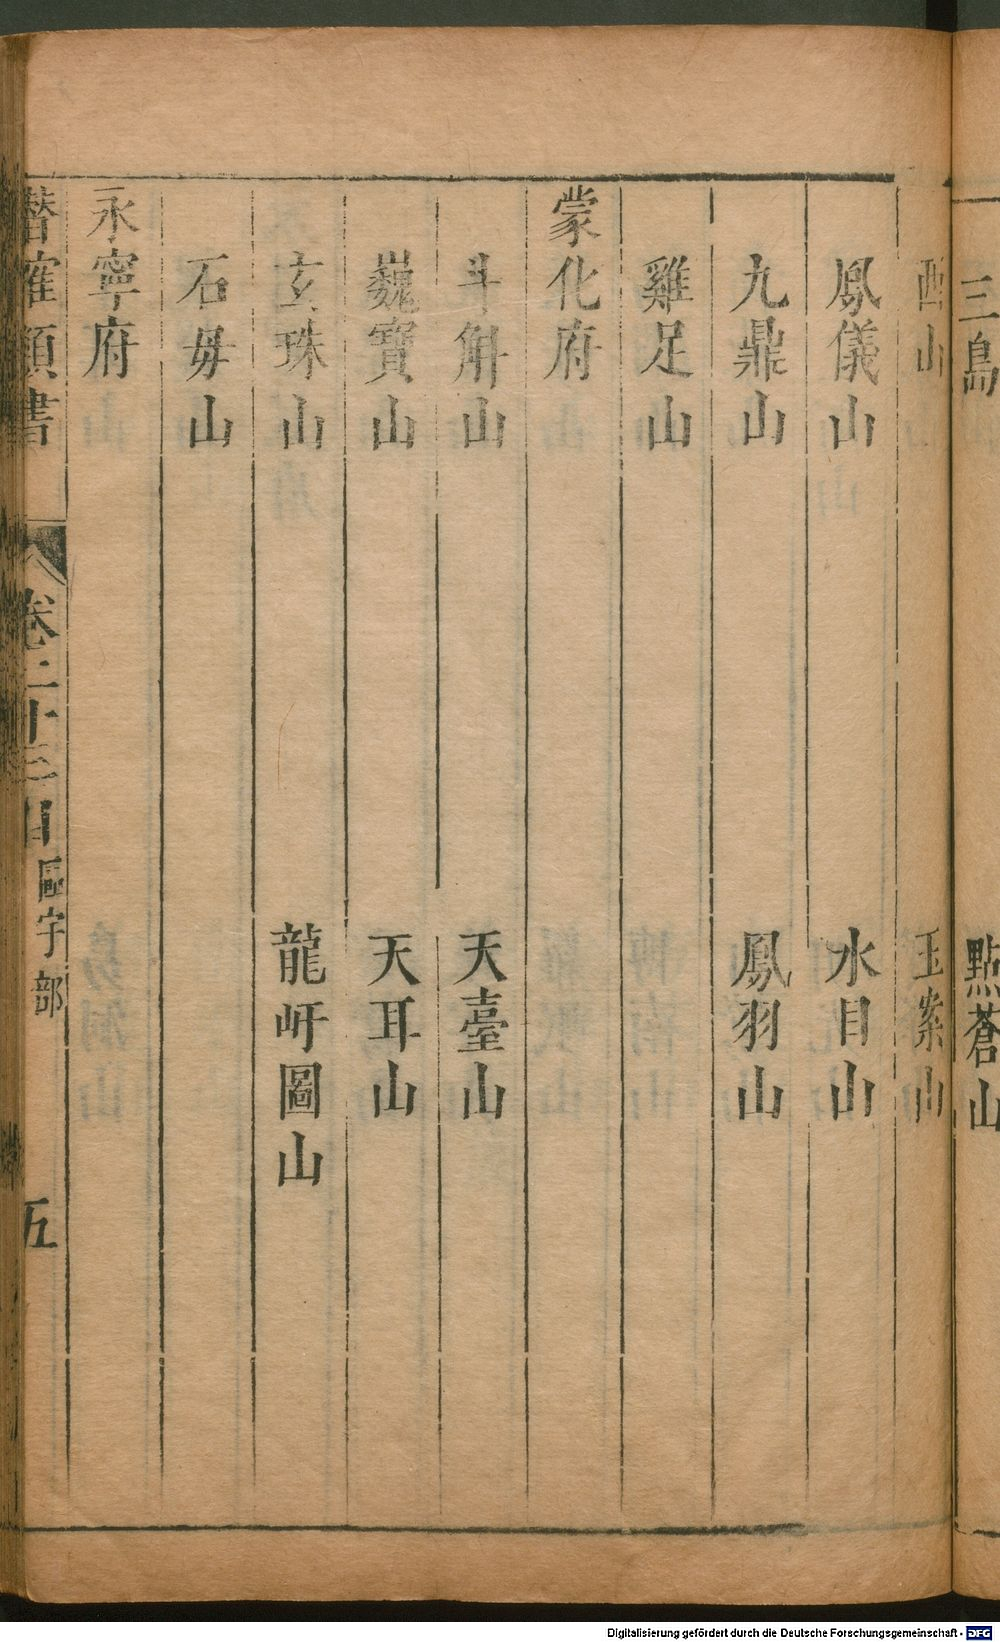 三島 點蒼山
山 玉案山
鳳儀山 水目山
九鼎山 鳳羽山
雞足山
蒙化府
斗斛山 天臺山
巍寶山 天耳山
玄珠山 龍㟁圖山
石毋山
永寧府
潛確類書 卷二十三 四區宇部 五
Digitalisierung gefördert durch die Deutsche Forschungsgemeinschaft - DFG